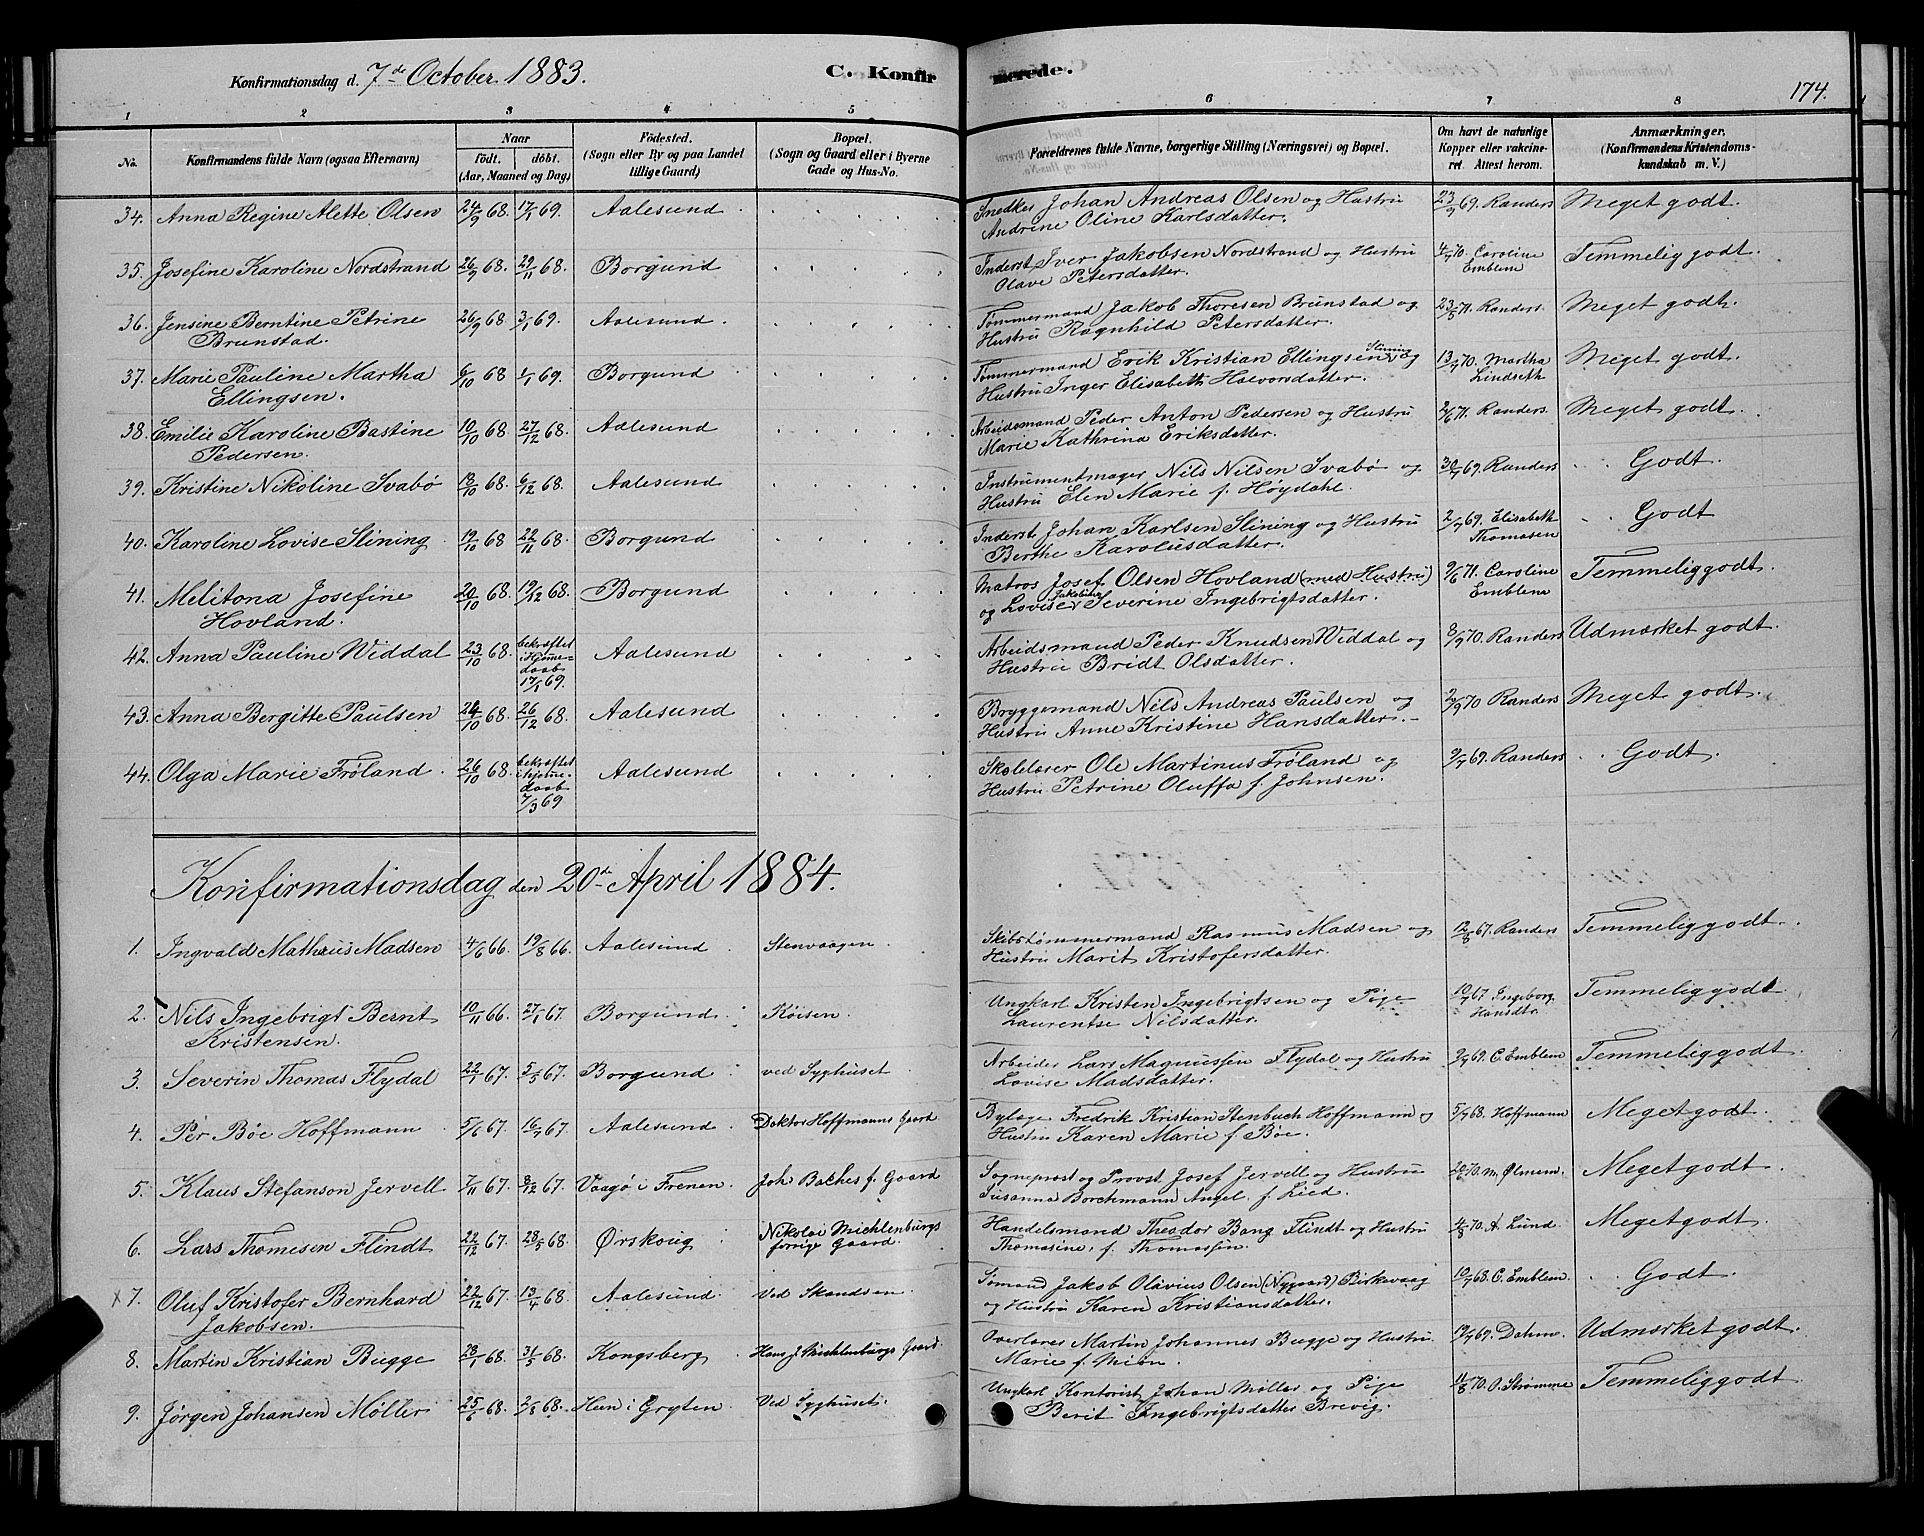 Konfirmationsdag d. 7de October 1883.
C. Konfirmerede.
174.
1 2 3 4 5 6 7 8
No. Konfirmandens fulde Navn (ogsaa Efternavn) Naar födt. döbt. (Aar, Maaned og Dag) Födested. (Sogn eller By og paa Landet tillige Gaard) Bopæl. (Sogn og Gaard eller i Byerne Gade og Hus-No. Forældrenes fulde Navne, borgerlige Stilling (Næringsvei) og Bopæl. Om havt de naturlige Kopper eller vakcineret. Attest herom. Anmærkninger. (Konfirmandens Kristendomskundskab m. V.)
34. Anna Regine Alette Olsen 24/9 68. 17/1 69. Aalesund Snedker Johan Andreas Olsen og Hustru 23/9 69. Randers Meget godt.
Andrine Oline Karlsdatter.
35. Josefine Karoline Nordstrand 26/9 68. 29/11 68. Borgund Inderst Iver Jakobsen Nordstrand og Hustru 4/7 70. Caroline Emblem Temmelig godt.
Olave Petersdatter.
36. Jensine Berntine Petrine 26/9 68. 3/1 69. Aalesund Tømmermand Jakob Thoresen Brunstad og 23/5 71. Randers. Meget godt.
Brunstad. Hustru Ragnhild Petersdatter.
37. Marie Pauline Martha 6/10 68 1/1 69. Borgund Tømmermand Erik Kristian Ellingsen Slining og 13/7 70. Martha Lindseth Meget godt.
Ellingsen. Hustru Inger Elisabeth Halvorsdatter.
38. Emilie Karoline Bastine 10/10 68 27/12 68. Aalesund Arbeidsmand Peder Anton Pedersen og Hustru 2/6 71. Randers. Meget godt.
Pedersen. Marie Kathrina Eriksdatter.
39. Kristine Nikoline Svabø 18/10 68. 6/12 68. Aalesund Instrumentmager Nils Nilsen Svabø og 30/7 69. Randers Godt.
Hustru Elen Marie f. Høydahl.
40. Karoline Lovise Slining 19/10 68 22/11 68. Borgund Inderst Johan Karlsen Slining og Hustru 2/7 69. Elisabeth Thomasen Godt
Berthe Karolusdatter.
41. Melitona Josefine 20/10 68. 19/12 68. Borgund Matros Josef Olsen Hovland (med Hustru) 9/6 71. Caroline Emblem Temmelig godt.
Hovland. og Lovise Jakobine Severine Ingebrigtsdatter.
42. Anna Pauline Widdal 23/10 68. bekræftet i Hjemmedaab 17/1 69. Aalesund Arbeidsmand Peder Knudsen Widdal og 8/9 70. Randers Udmærket godt.
Hustru Bridt Olsdatter.
43. Anna Bergitte Paulsen 24/10 68. 26/12 68. Aalesund Bryggemand Nils Andreas Paulsen og 2/9 70 Randers Meget godt.
Hustru Anne Kristine Hansdatter.
44. Olga Marie Frøland 26/10 68. bekræftet i hjemmedaab 7/3 69 Aalesund Skolelærer Ole Martinus Frøland og 2/7 69. Randers Godt.
Hustru Petrine Oluffa f. Johnsen.
Konfirmationsdag den 20de April 1884.
1. Ingvald Mathæus Madsen 4/6 66. 19/8 66. Aalesund Stenvaagen. Skibstømmermand Rasmus Madsen og 12/8 67. Randers Temmelig godt.
Hustru Marit Kristofersdatter.
2. Nils Ingebrigt Bernt 10/11 66. 27/1 67. Borgund. Köisen. Ungkarl Kristen Ingebrigtsen og Pige 10/7 67 Ingeborg Hansdtr. Temmelig godt
Kristensen. Laurentse Nilsdatter.
3. Severin Thomas Flydal 22/1 67. 5/5 67. Borgund ved Syghuset Arbeider Lars Magnussen Flydal og Hustru 2/7 69. C. Emblem Temmelig godt.
Lovise Madsdatter.
4. Per Bøe Hoffmann 5/6 67. 16/7 67. Aalesund Doktor Hoffmanns Gaard Bylæge Fredrik Kristian Stenbuch Hoffmann og 5/7 68. Hoffmann Meget godt.
Hustru Karen Marie f. Bøe.
5. Klaus Stefanson Jervell 7/11 67. 8/12 67. Vaagø i Frenen. Joh Baches f. Gaard Sogneprest og Provst Josef Jervell og Hustru 20/9 70. Meget godt.
Susanna Borchmann Angel. f. Lied.
6. Lars Thomesen Flindt 22/12 67. 28/5 68. Ørskoug Nikolai Michlenburgs forrige Gaard. Handelsmand Theodor Bang Flindt og Hustru 4/8 70. A. Lund. Meget godt.
Thomasine, f. Thomassen.
x 7. Oluf Kristofer Bernhard 22/12 67. 13/4 68. Aalesund. Ved Skandsen. Sømand Jakob Olavius Olsen (Nygaard) Birkevaag 10/7 68. C. Emblem. Godt.
Jakobsen. og Hustru Karen Kristiansdatter.
8. Martin Kristian Bugge 28/1 68. 31/5 68. Kongsberg Hans J. Michlenburgs Gaard. Overlærer Martin Johannes Bugge og Hustru 19/7 69. Dahm. Udmærket godt.
Marie f. Mien.
9. Jørgen Johansen Møller 25/6 68. 2/8 68. Hen i Gryten Ved Syghuset. Ungkarl Kontorist Johan Møller og Pige 11/8 70. O. Strømme Temmelig godt
Berit Ingebrigtsdatter Brevig.